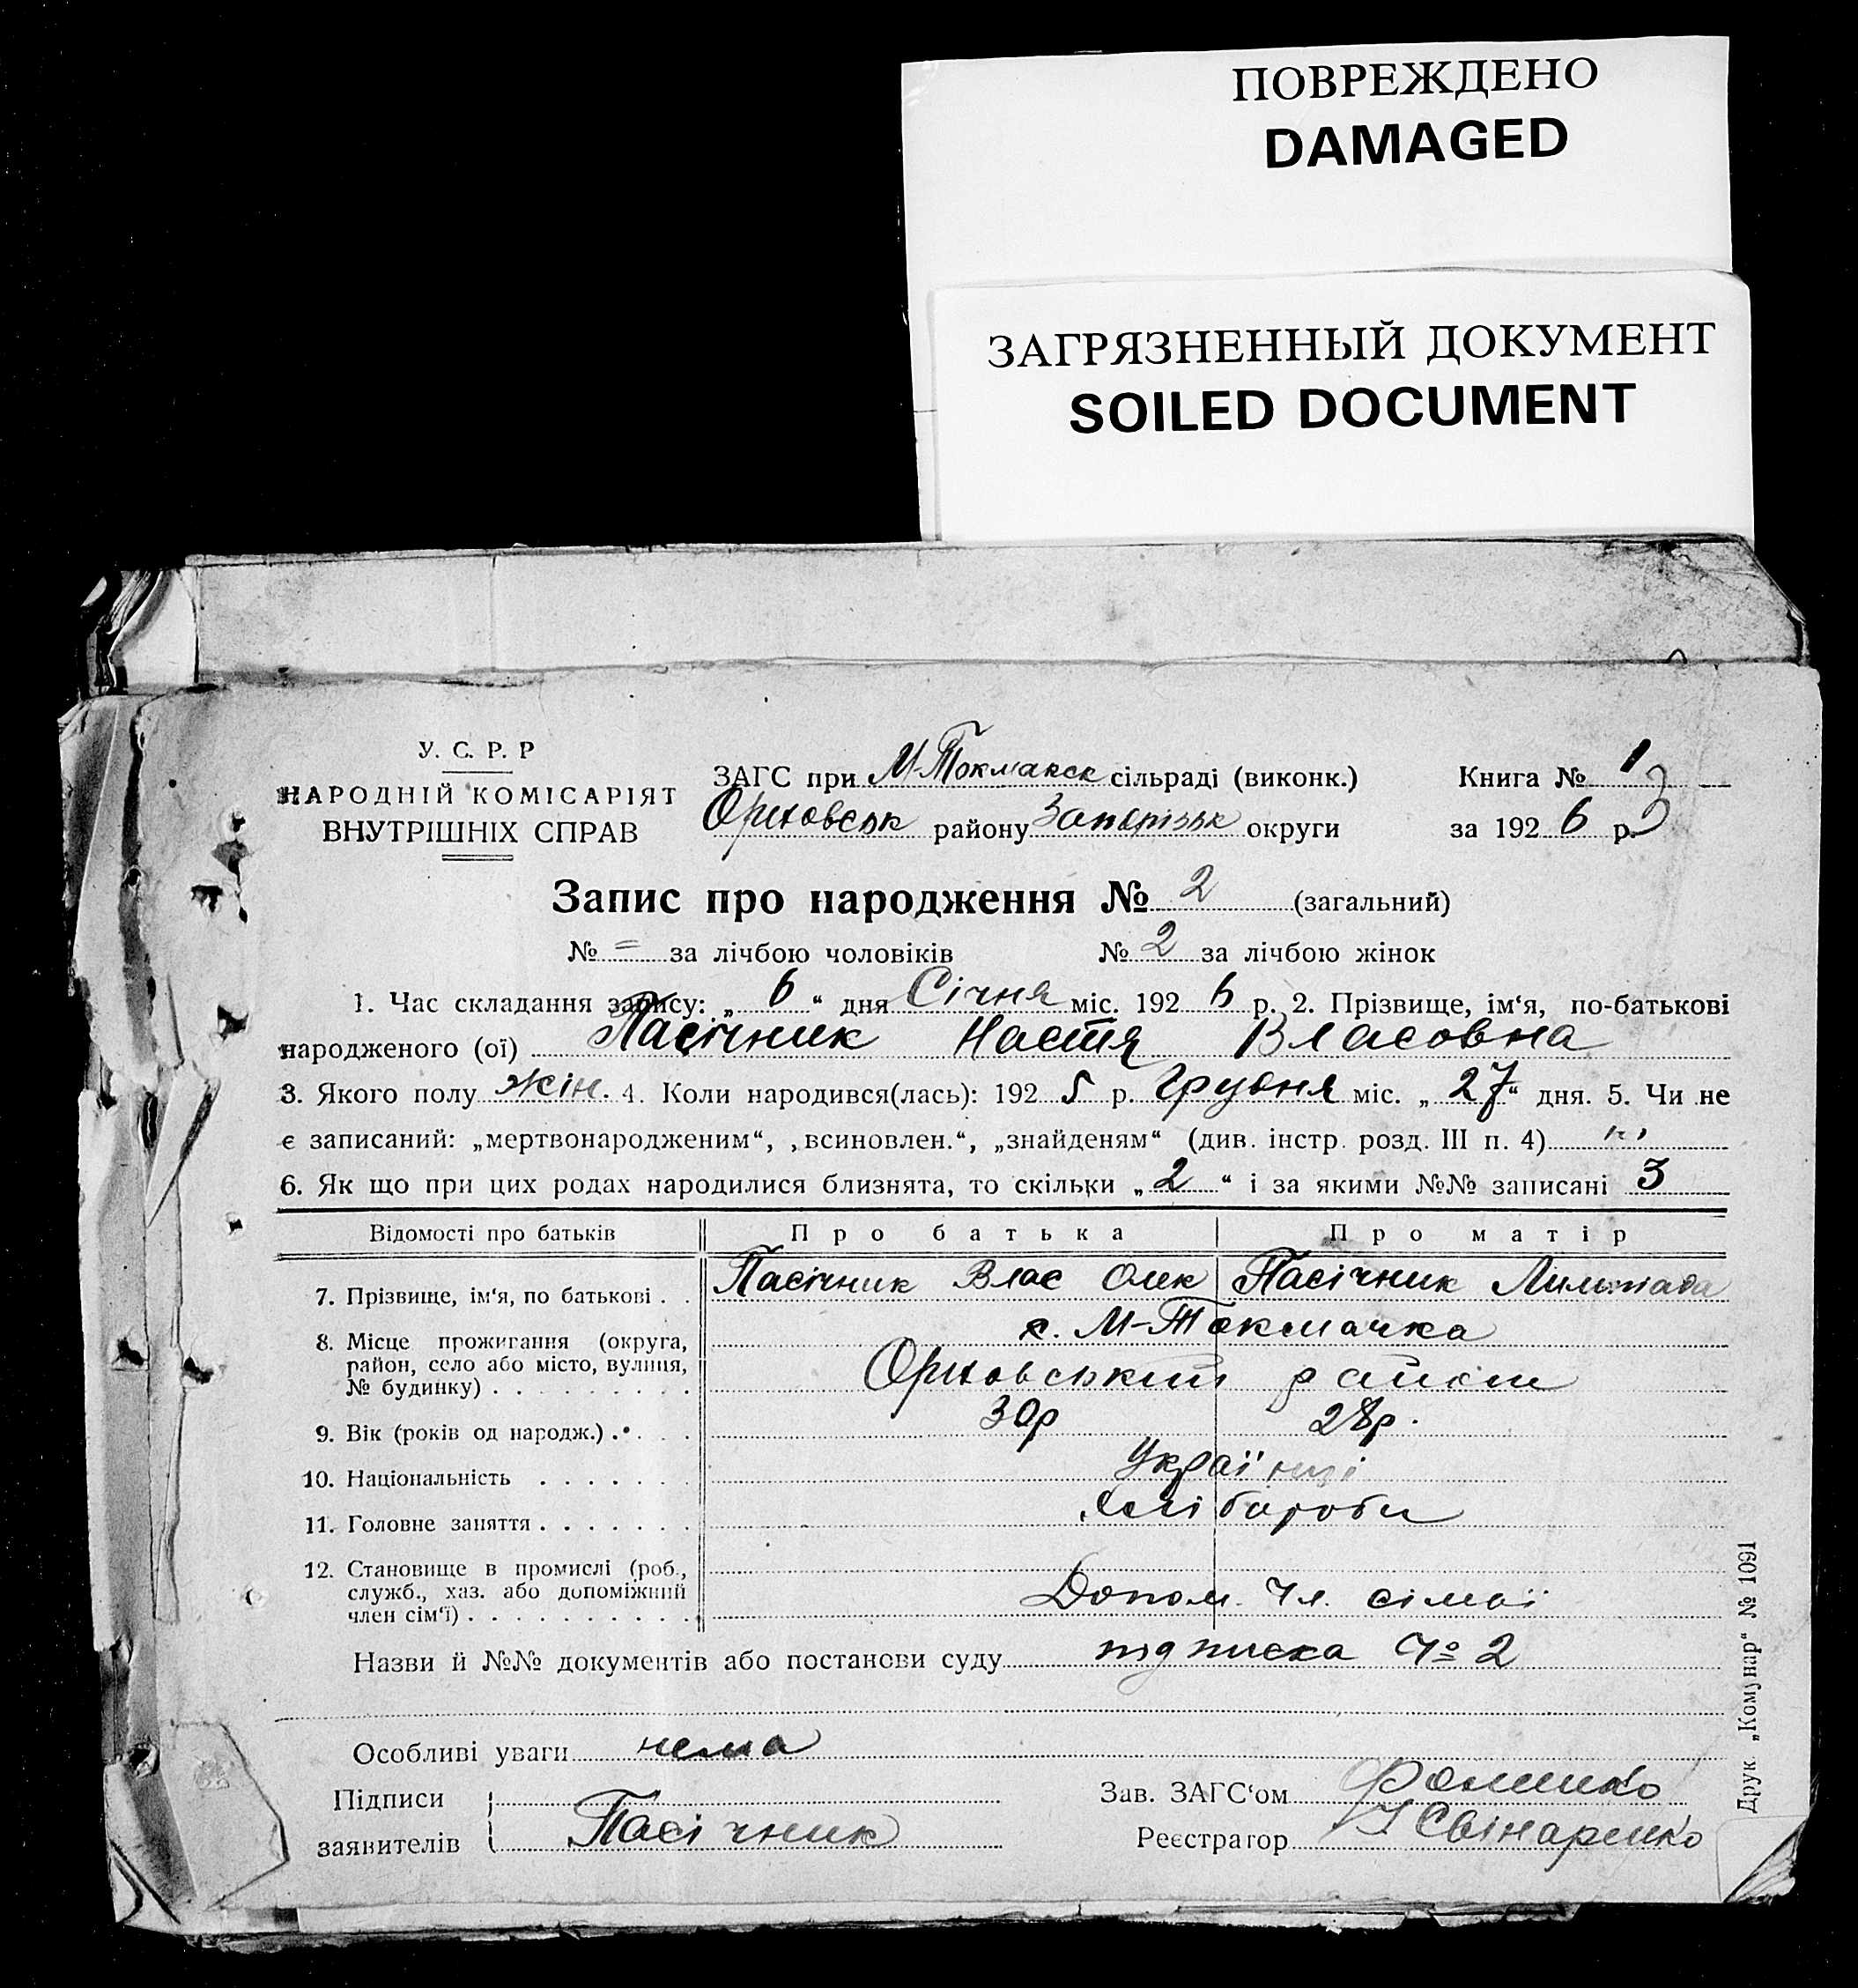 ПОВРЕЖДЕНО
DAMAGED
ЗАГРЯЗНЕННЫЙ ДОКУМЕНТ
SOILED DOCUMENT
У. С. Р. Р
НАРОДНІЙ КОМІСАРІЯТ
ВНУТРІШНІХ СПРАВ
ЗАГС при М-Токмакск сільраді (виконк.)
Оріховськ району Запорізьк округи
Книга № 1
за 1926 р.
3
Запис про народження № 2 (загальний)
№ = за лічбою чоловіків № 2 за лічбою жінок
1. Час складання запису: „ 6 “ дня Січня міс. 1926 р. 2. Прізвище, ім‘я, по-батькові
народженого (ої) Пасічник Настя Власовна
3. Якого полу жін. 4. Коли народився(лась): 1925 р. Грудня міс. „ 27 “ дня. 5. Чи не
є записаний: „мертвонародженим“, „всиновлен.“, „знайденям“ (див. інстр. розд. III п. 4)
6. Як що при цих родах народилися близнята, то скільки „ 2 “ і за якими №№ записані 3
Відомості про батьків Про батька Про матір
7. Прізвище, ім‘я, по батькові . . Пасічник Влас Олек Пасічник
8. Місце прожигання (округа, район, село або місто, вулиця, № будинку) . . . . . . . . . с. М-Токмачка
Оріховський район
9. Вік (років од народж.) . . . . 30р 28р.
10. Національність . . . . . . Українці
11. Головне заняття . . . . . . . Хлібороби
12. Становище в промислі (роб., служб., хаз. або допоміжний член сім‘ї) . . . . . . . . . . Допом. чл. сімьї
Назви й №№ документів або постанови суду підписка № 2
Особливі уваги нема
Підписи
заявителів Пасічник
Зав. ЗАГС‘ом Фоменко
Реєстратор Свінаренко
Друк. „Комунар“ № 1091